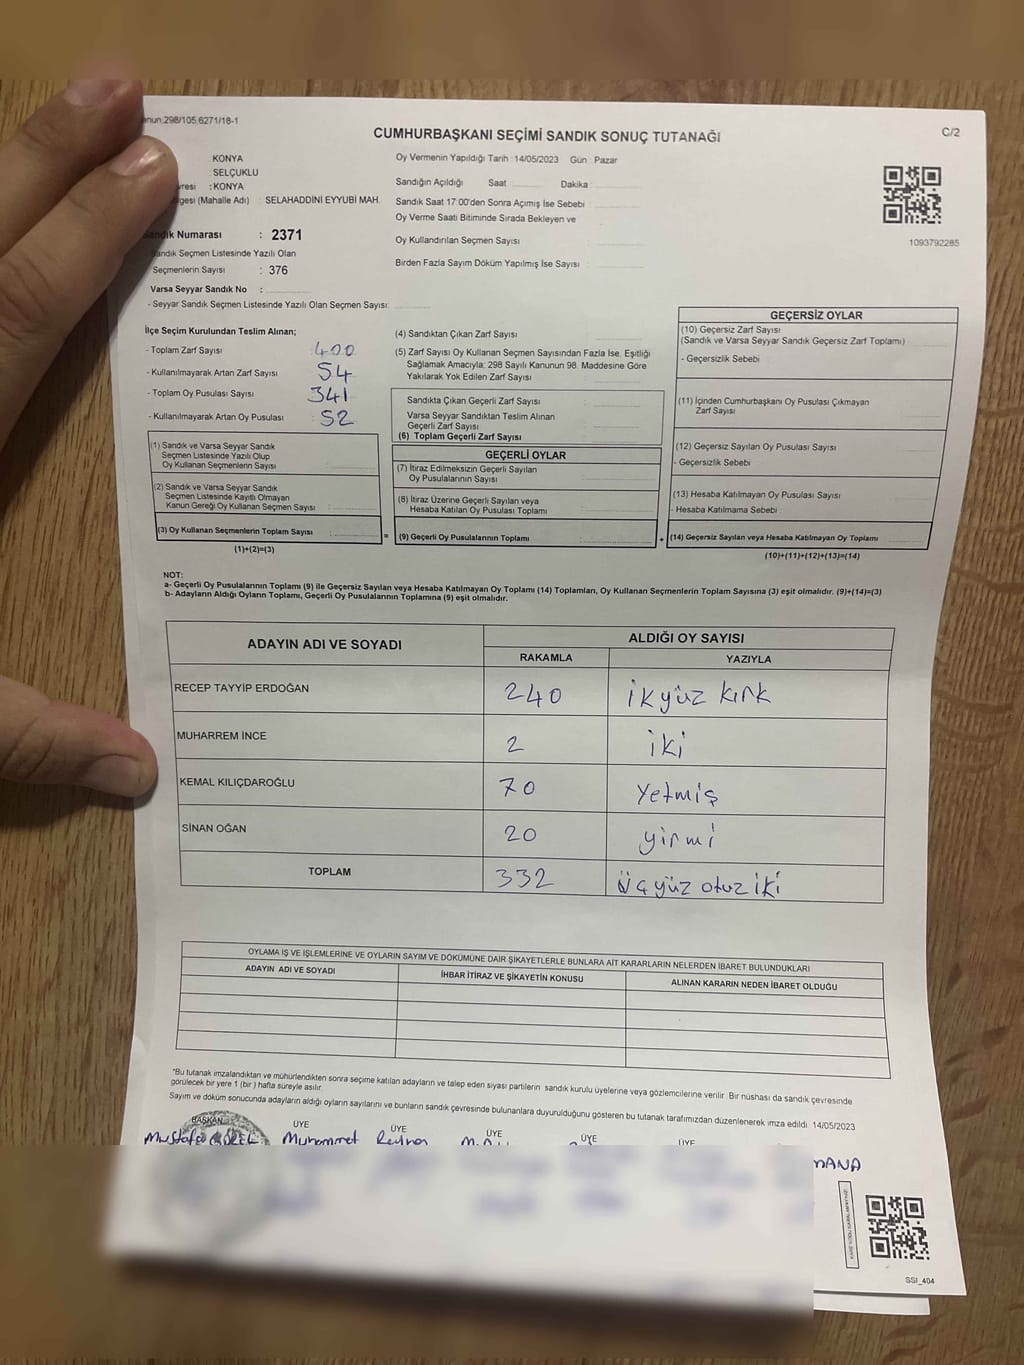 anun:298/105,6271/18-1
C/2
CUMHURBAŞKANI SEÇİMİ SANDIK SONUÇ TUTANAĞI
KONYA
SELÇUKLU
vresi : KONYA
lgesi (Mahalle Adı) : SELAHADDİNİ EYYUBİ MAH.
Sandık Numarası : 2371
Sandık Seçmen Listesinde Yazılı Olan
Seçmenlerin Sayısı : 376
Varsa Seyyar Sandık No :
- Seyyar Sandık Seçmen Listesinde Yazılı Olan Seçmen Sayısı:
Oy Vermenin Yapıldığı Tarih : 14/05/2023 Gün : Pazar
Sandığın Açıldığı Saat Dakika
Sandık Saat 17:00'den Sonra Açımış İse Sebebi :
Oy Verme Saati Bitiminde Sırada Bekleyen ve
Oy Kullandırılan Seçmen Sayısı
Birden Fazla Sayım Döküm Yapılmış İse Sayısı :
1093792285
İlçe Seçim Kurulundan Teslim Alınan;
- Toplam Zarf Sayısı : 400
- Kullanılmayarak Artan Zarf Sayısı : 54
- Toplam Oy Pusulası Sayısı : 341
- Kullanılmayarak Artan Oy Pusulası : 52
(1) Sandık ve Varsa Seyyar Sandık
Seçmen Listesinde Yazılı Olup
Oy Kullanan Seçmenlerin Sayısı :
(2) Sandık ve Varsa Seyyar Sandık
Seçmen Listesinde Kayıtlı Olmayan
Kanun Gereği Oy Kullanan Seçmen Sayısı :
(3) Oy Kullanan Seçmenlerin Toplam Sayısı :
(1)+(2)=(3)
=
(4) Sandıktan Çıkan Zarf Sayısı
(5) Zarf Sayısı Oy Kullanan Seçmen Sayısından Fazla İse, Eşitliği
Sağlamak Amacıyla; 298 Sayılı Kanunun 98. Maddesine Göre
Yakılarak Yok Edilen Zarf Sayısı
Sandıkta Çıkan Geçerli Zarf Sayısı
Varsa Seyyar Sandıktan Teslim Alınan
Geçerli Zarf Sayısı
(6) Toplam Geçerli Zarf Sayısı
GEÇERLİ OYLAR
(7) İtiraz Edilmeksizin Geçerli Sayılan
Oy Pusulalarının Sayısı
(8) İtiraz Üzerine Geçerli Sayılan veya
Hesaba Katılan Oy Pusulası Toplamı
(9) Geçerli Oy Pusulalarının Toplamı
+
GEÇERSİZ OYLAR
(10) Geçersiz Zarf Sayısı
(Sandık ve Varsa Seyyar Sandık Geçersiz Zarf Toplamı)
- Geçersizlik Sebebi
(11) İçinden Cumhurbaşkanı Oy Pusulası Çıkmayan
Zarf Sayısı
(12) Geçersiz Sayılan Oy Pusulası Sayısı
- Geçersizlik Sebebi
(13) Hesaba Katılmayan Oy Pusulası Sayısı
- Hesaba Katılmama Sebebi :
(14) Geçersiz Sayılan veya Hesaba Katılmayan Oy Toplamı
(10)+(11)+(12)+(13)=(14)
NOT:
a- Geçerli Oy Pusulalarının Toplamı (9) ile Geçersiz Sayılan veya Hesaba Katılmayan Oy Toplamı (14) Toplamları, Oy Kullanan Seçmenlerin Toplam Sayısına (3) eşit olmalıdır. (9)+(14)=(3)
b- Adayların Aldığı Oyların Toplamı, Geçerli Oy Pusulalarının Toplamına (9) eşit olmalıdır.
ADAYIN ADI VE SOYADI
ALDIĞI OY SAYISI
RAKAMLA YAZIYLA
RECEP TAYYİP ERDOĞAN 240 ikyüz kırk
MUHARREM İNCE 2 iki
KEMAL KILIÇDAROĞLU 70 Yetmiş
SİNAN OĞAN 20 yirmi
TOPLAM 332 üçyüz otuz iki
OYLAMA İŞ VE İŞLEMLERİNE VE OYLARIN SAYIM VE DÖKÜMÜNE DAİR ŞİKAYETLERLE BUNLARA AİT KARARLARIN NELERDEN İBARET BULUNDUKLARI
ADAYIN ADI VE SOYADI İHBAR İTİRAZ VE ŞİKAYETİN KONUSU ALINAN KARARIN NEDEN İBARET OLDUĞU
"Bu tutanak imzalandıktan ve mühürlendikten sonra seçime katılan adayların ve talep eden siyasi partilerin sandık kurulu üyelerine veya gözlemcilerine verilir. Bir nüshası da sandık çevresinde
görülecek bir yere 1 (bir) hafta süreyle asılır.
Sayım ve döküm sonucunda adayların aldığı oyların sayılarını ve bunların sandık çevresinde bulunanlara duyurulduğunu gösteren bu tutanak tarafımızdan düzenlenerek imza edildi. 14/05/2023
BAŞKAN ÜYE ÜYE ÜYE ÜYE ÜYE
Mustafa Muhammet
SSİ_404